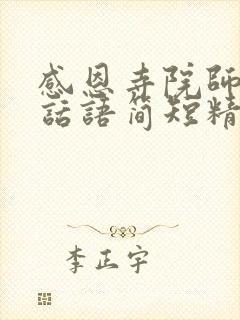 感恩寺院師
話語简短精
李正宇